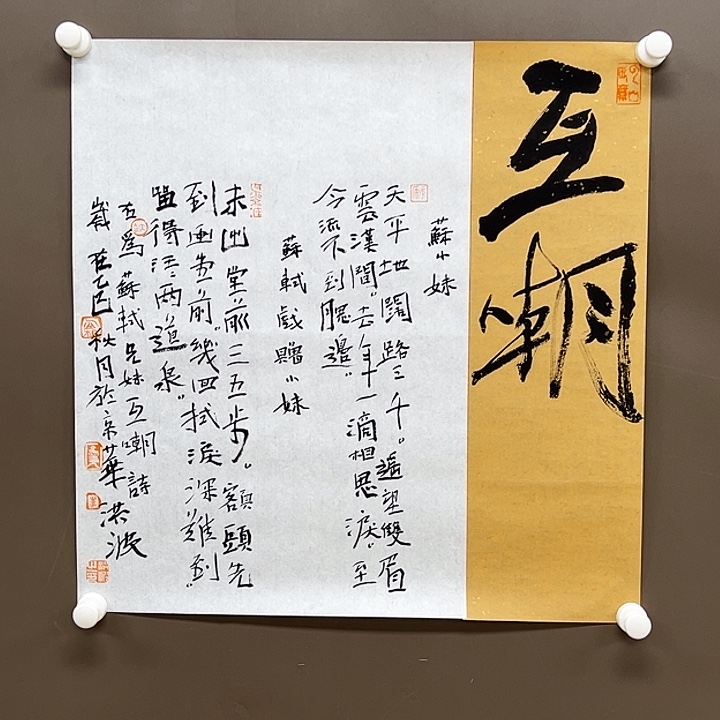 互嘲
蘇小妹
天平地闊路三千。遥望雙眉
雲漢間。去年一滴相思淚。至
今流不到腮邊。
蘇軾戲贈小妹
未出堂前三五步。額頭先
到画堂前。幾回拭淚深難到。
留得汪汪兩道泉。
右爲蘇軾兄妹互嘲詩
歲在乙巳秋月於京華洪波